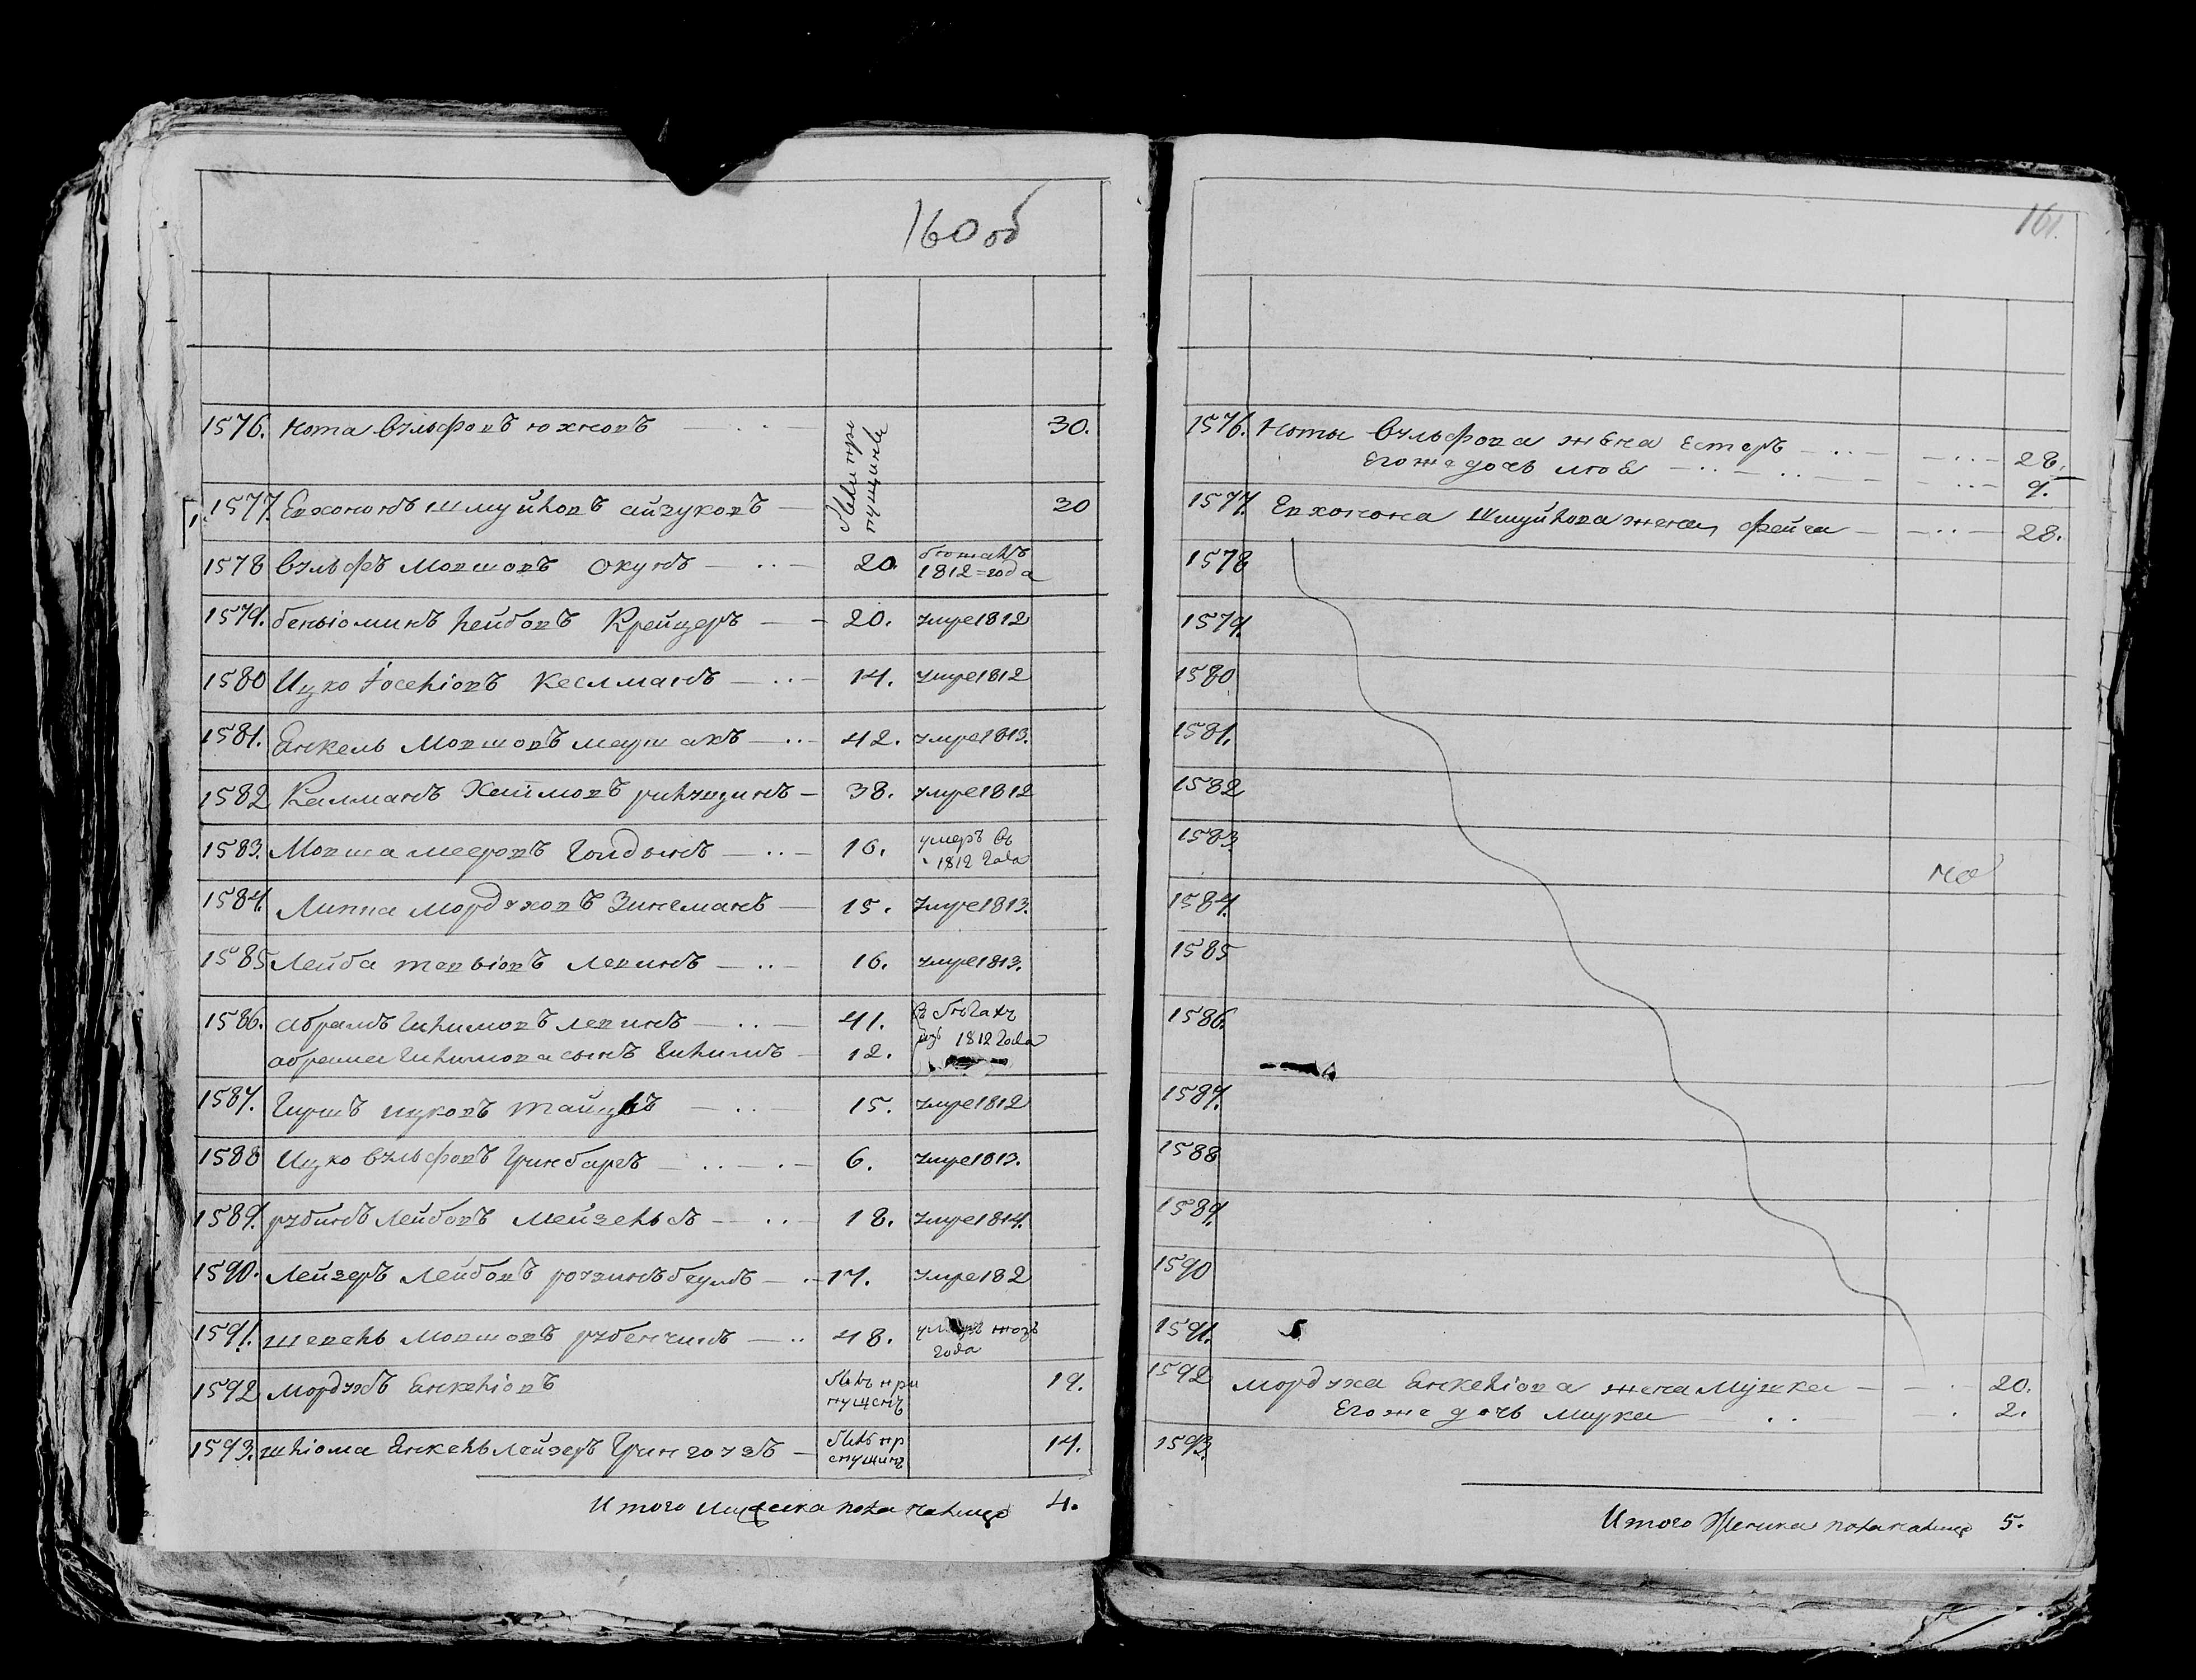 160 об
1576. Нота Вульфовъ Юхновъ 30.
1577. Евхононъ Шмуйловъ Айзуковъ 30
1578 Вульфъ Мовшовъ Окунь 20. в бегахъ
1812 = года
1579. Беньіоминъ Лейбовъ Крейцеръ 20. умре 1812
1580 Ицко Іоселіовъ Кеслманъ 14. умре 1812
1581. Янкель Мовшовъ 42. умре 1813.
1582 Калманъ Хаимовъ 38. умре 1812
1583. Мовша Мееровъ Голдынъ 16. умеръ въ
1812 года
1584. Липпа Мордуховъ Зинеманъ 15. умре 1813.
1585 Лейба Тевьіовъ Левинъ 16. умре 1813.
1586. Абрамъ Гилимовъ Левинъ 41. въ бегахъ
съ 1812 года
Абрама Гилимова сынъ Гилимъ 12.
1587. Гиршъ Ицковъ Тайцъ 15. умре 1812
1588 Ицко Вульфовъ Гринбаргъ 6. умре 1813.
1589. Рубинъ Лейбовъ Мейзельсъ 18. умре 1814.
1590. Лейзеръ Лейбовъ 17. умре 182
1591. Шевель Мовшовъ Рубенчикъ 48. умеръ
года
1592 Мордухъ Янкеліовъ 19.
1593. Шліома Янкель Лейзеръ 14.
Итого мужеска пола налицо 4.
161.
1576. Ноты Вульфова жена Естеръ 28.
Его же дочь 9.
1577. Евхонона Шмуйлова жена Фейга 28.
1578
1579.
1580
1581.
1582
1583.
1584.
1585
1586.
1587.
1588
1589.
1590
1591.
1592 Мордуха Янкеліова жена Мушка 20.
Его же дочь Мирка 2.
1593.
Итого женска пола налицо 5.